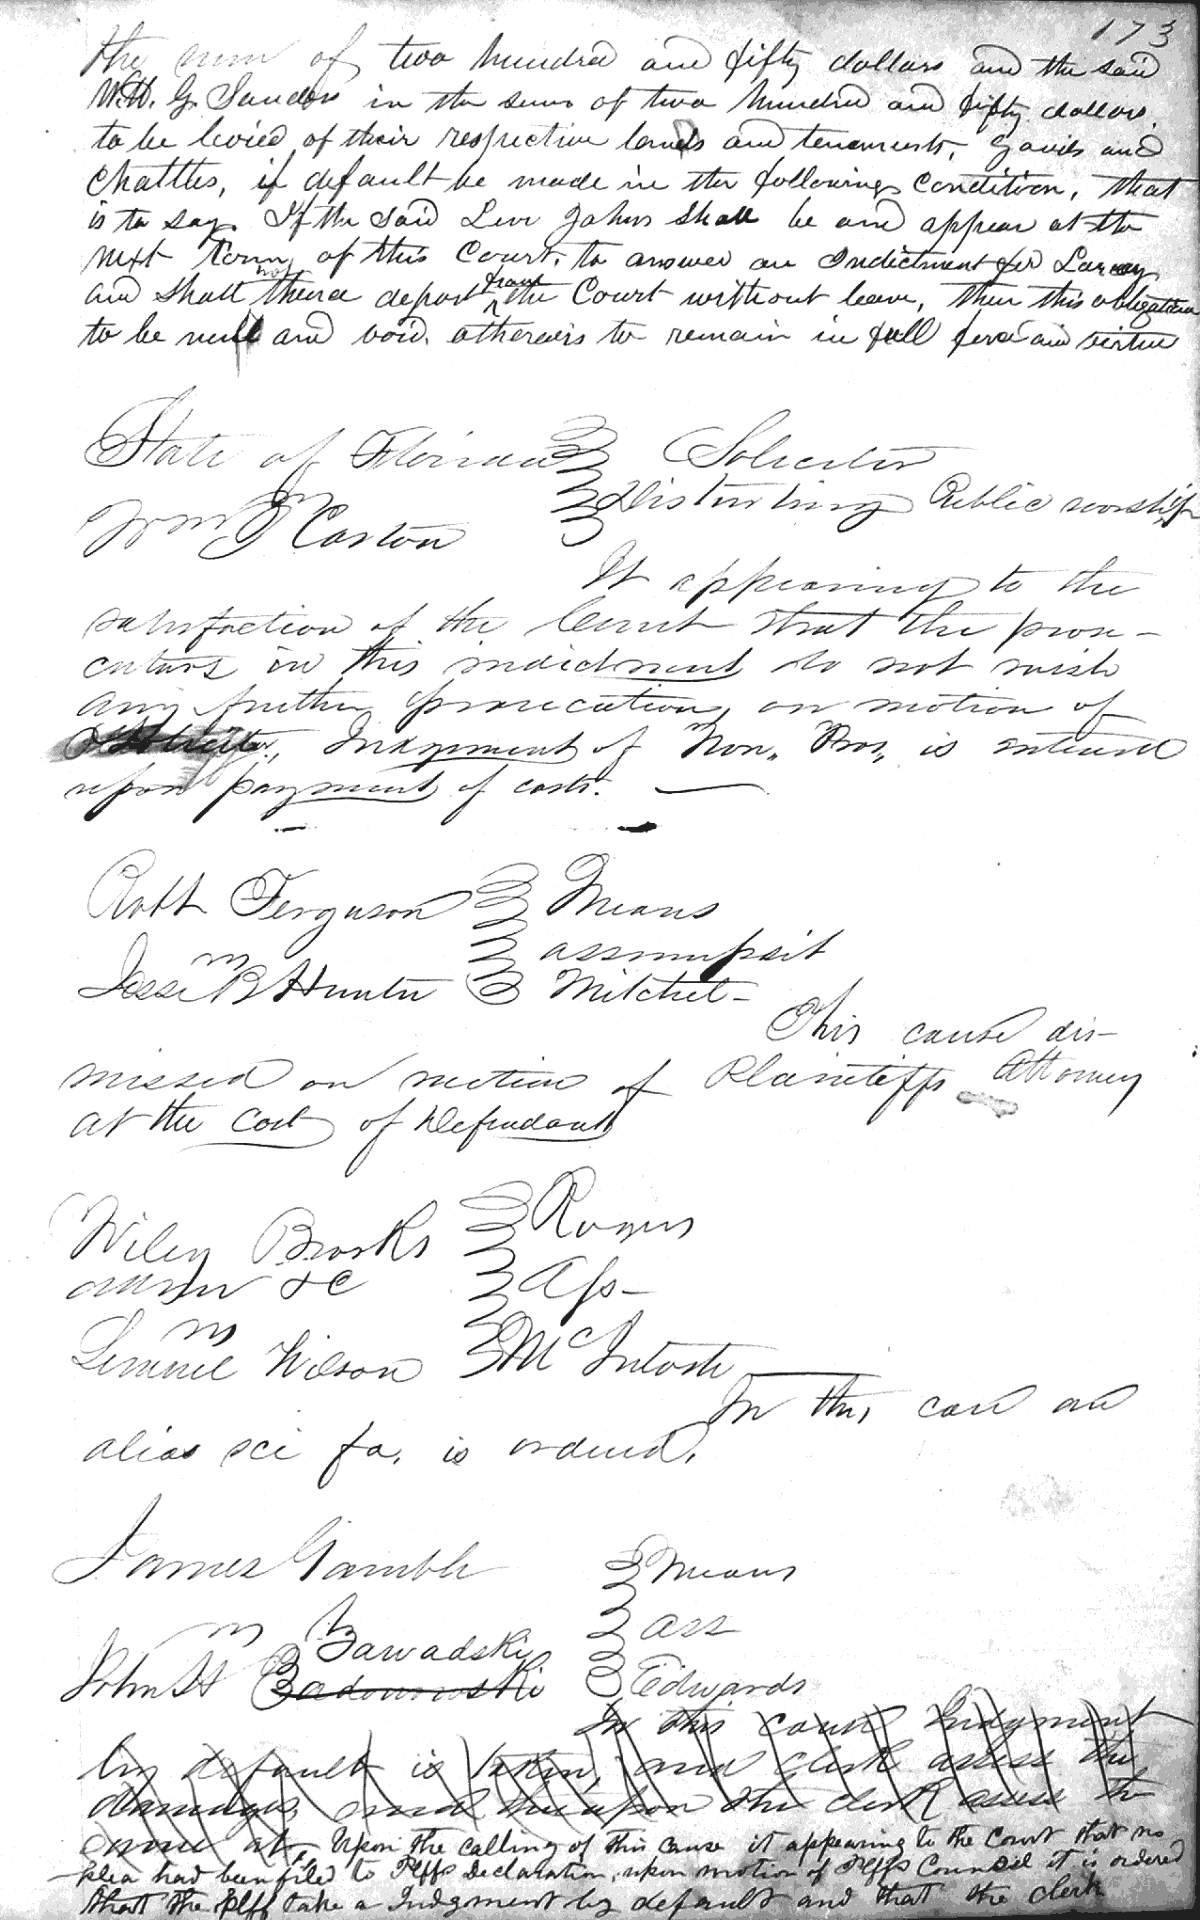 173
the sum of two hundred and fifty dollars and the said
W.H. G. Sanders in the sum of two hundred and fifty dollars.
to be levied of their respective lands and tenements, goods and
Chattles, if default be made in the following condition, that
is to say. If the said Levi Johns shall be and appear at the
next Term of this Court, to answer an Indictment for Larceny
and shall not thence depart from the Court without leave, then this obligation
to be null and void, otherwise to remain in full force and virtue
State of Florida Solicitor
vs Disturbing Public worship
Wm J Caston
It appearing to the
satisfaction of the Court that the prose-
cutors in this indictment do not wish
any further prosecution, on motion of
Solicitor, Judgment of Non. Pros. is entered
upon payment of costs.
Robt Ferguson Means
vs assumpsit
Jesse B Hunter Mitchel-
This cause dis-
missed on motion of Plaintiffs Attorney
at the cost of Defendant
Wiley Brooks Rogers
admr &C Ass-
vs
Lemuel Wilson McIntosh
In this case an
alias sci fa. is ordered.
James Gamble Means
vs ass
Zawadski
John H Edwards
In this cause Judgment
by default is taken, and clerk assess the
damages, and thereupon the clerk assess the
same at, Upon the calling of this cause it appearing to the Court that no
plea had been filed to Plffs Declaration, upon motion of Plffs Council it is ordered
that the Plff take a Judgment by default and that the clerk